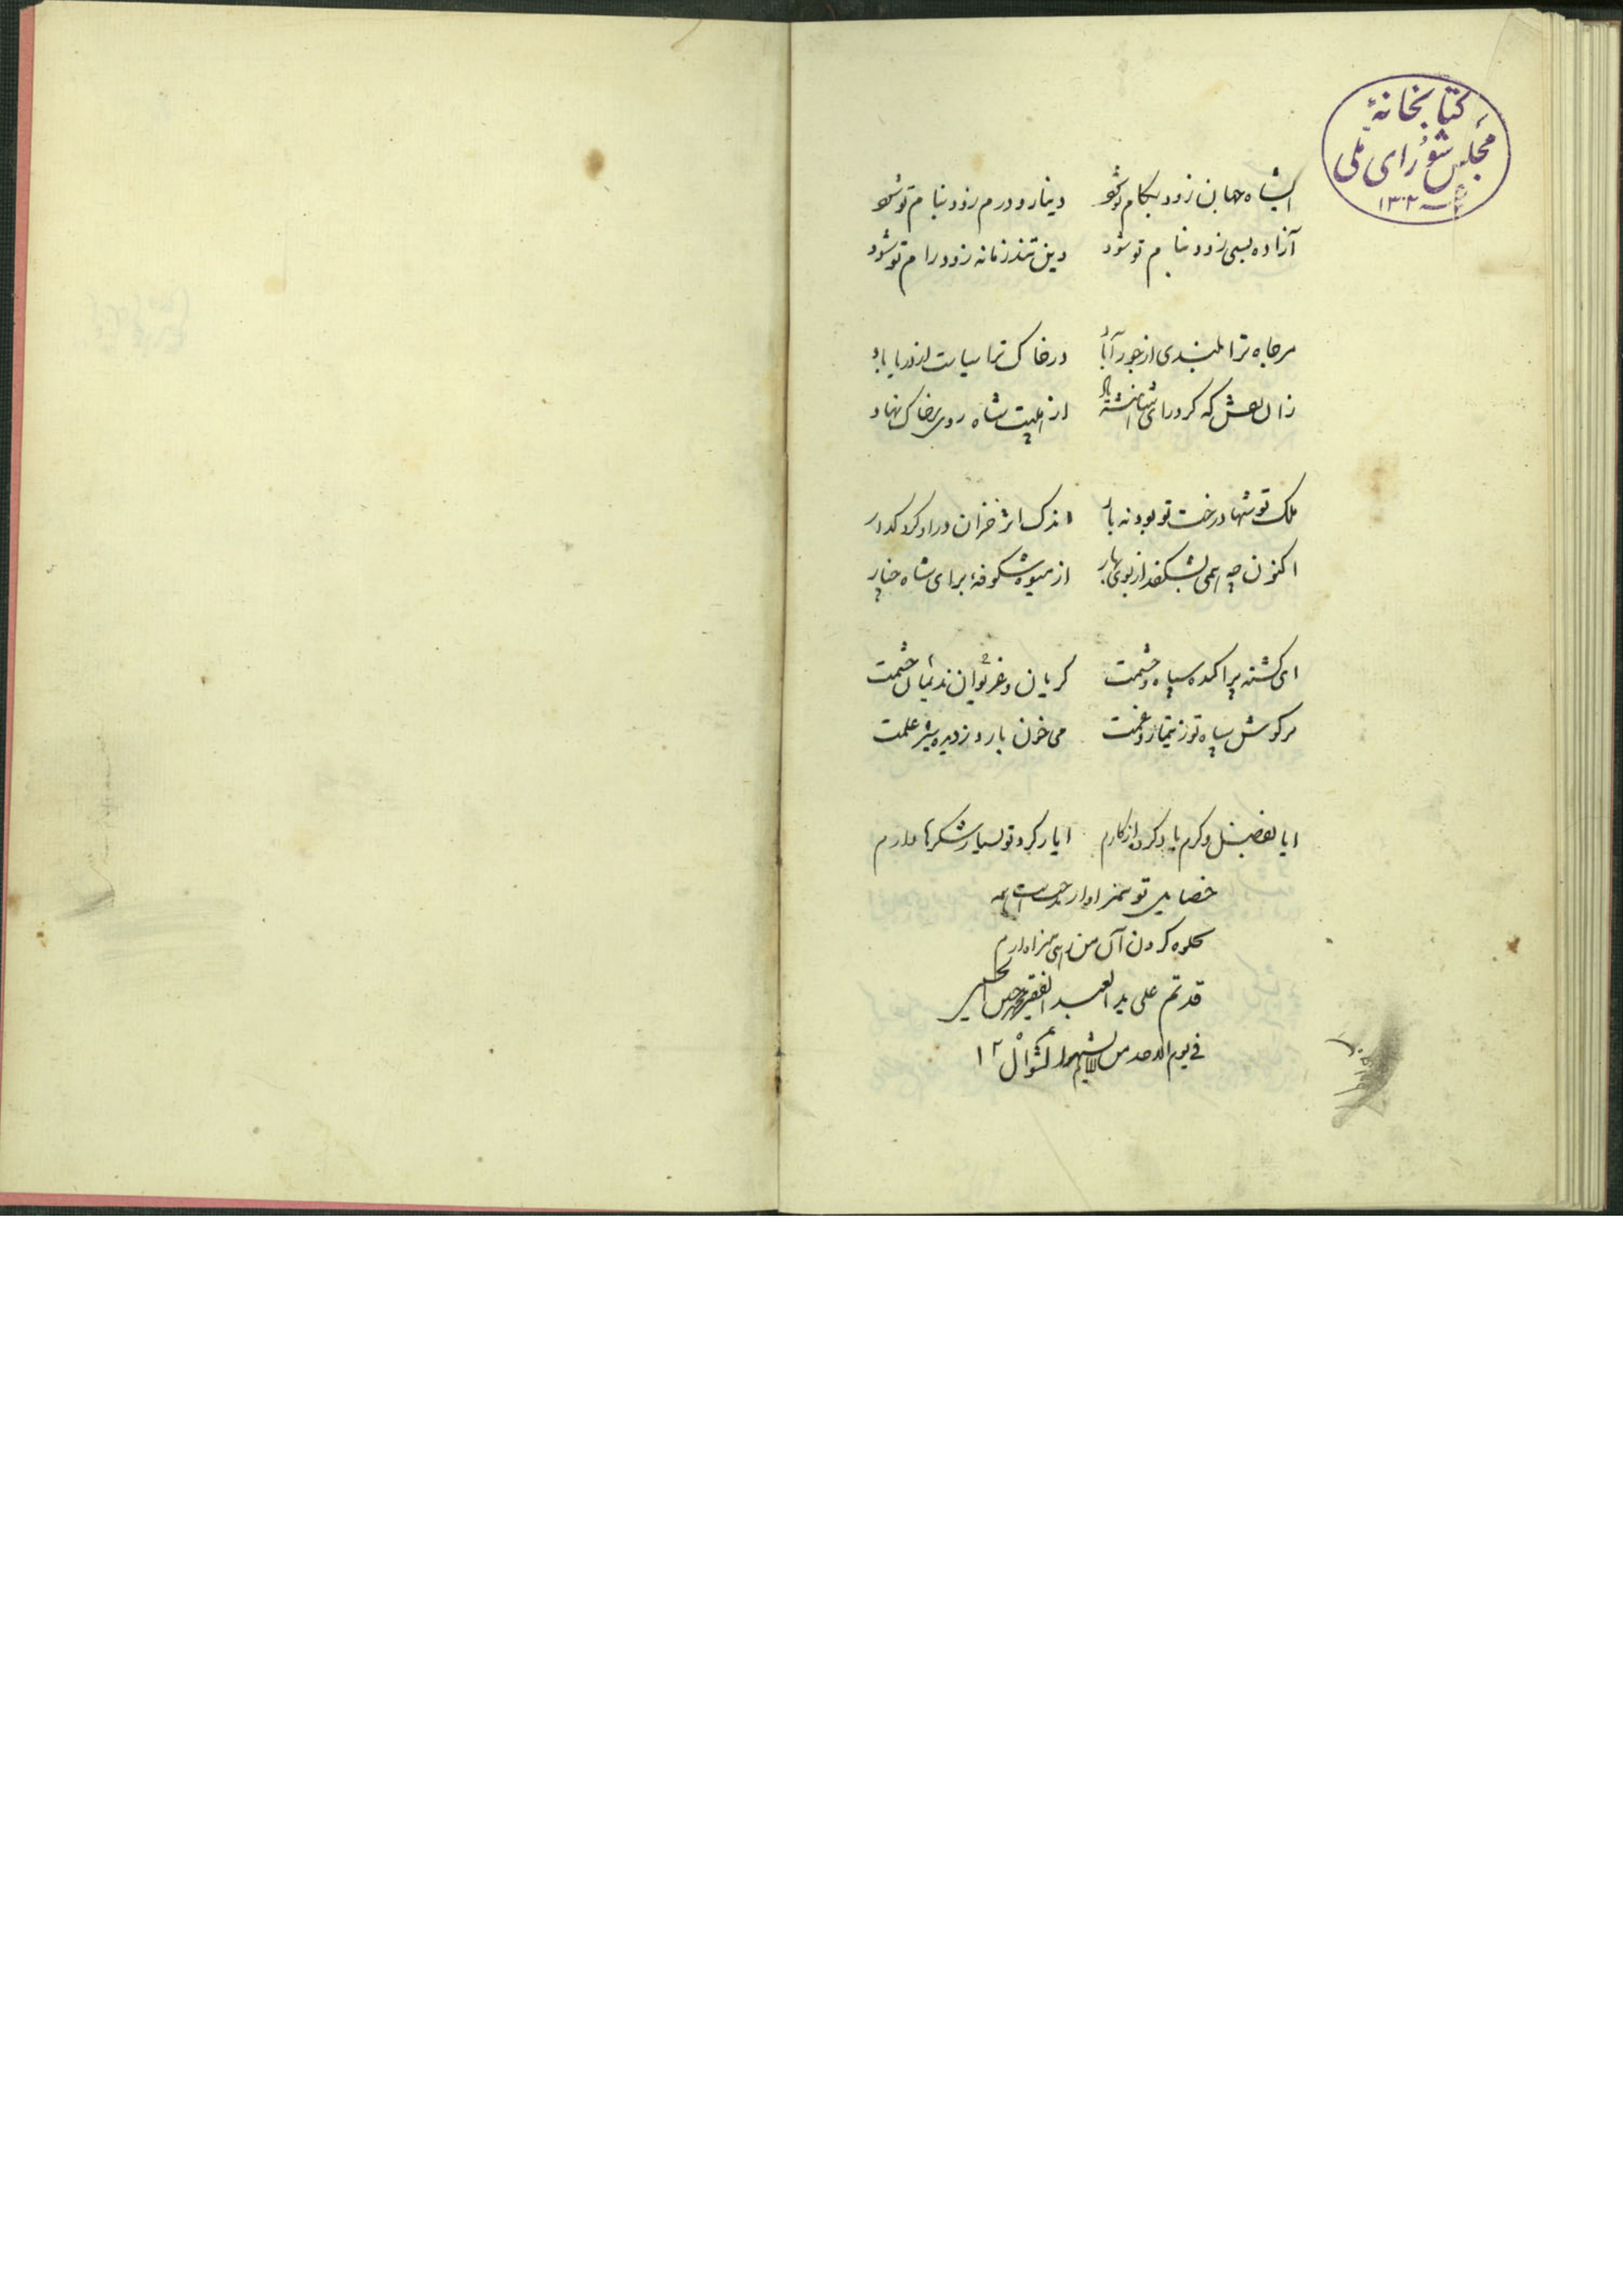 کتابخانهٔ
مجلس شورای ملی
سنه ۱۳۰۲
ایشاه جهان زود بکام تو شود دینار و درم زود بنام تو شود
آزاده بسی زود بنام تو شود وین تند زمانه زود رام تو شود
مر جاه ترا بلندی از جور آباد در خاک ترا سیاست از دریا باد
زان لعش که کرد رای از هیبت شاه روی بر خاک نهاد
ملک تو شها درخت تو بود نه بار اندک اثر خزان در او کرد گذار
اکنون چه همی بشکفد از بوی بهار از میوه شکوفهٔ برای شاه
ای گشته پراکنده سپاه و حشمت گریان و غریوان ندیمان حشمت
مر گوش سپاه تو ز تیمار و غمت می خون بارد ز دیده شیر علمت
ایا بفضل و کرم یاد کرده از کارم ایادی تو بسیار شکرها دارم
خصایل تو سزاوار همه
جلوه کردن آن من رهی سزاوارم
قد تم علی ید العبد الفقیر
فی یوم الاحد من شوال ۱۲